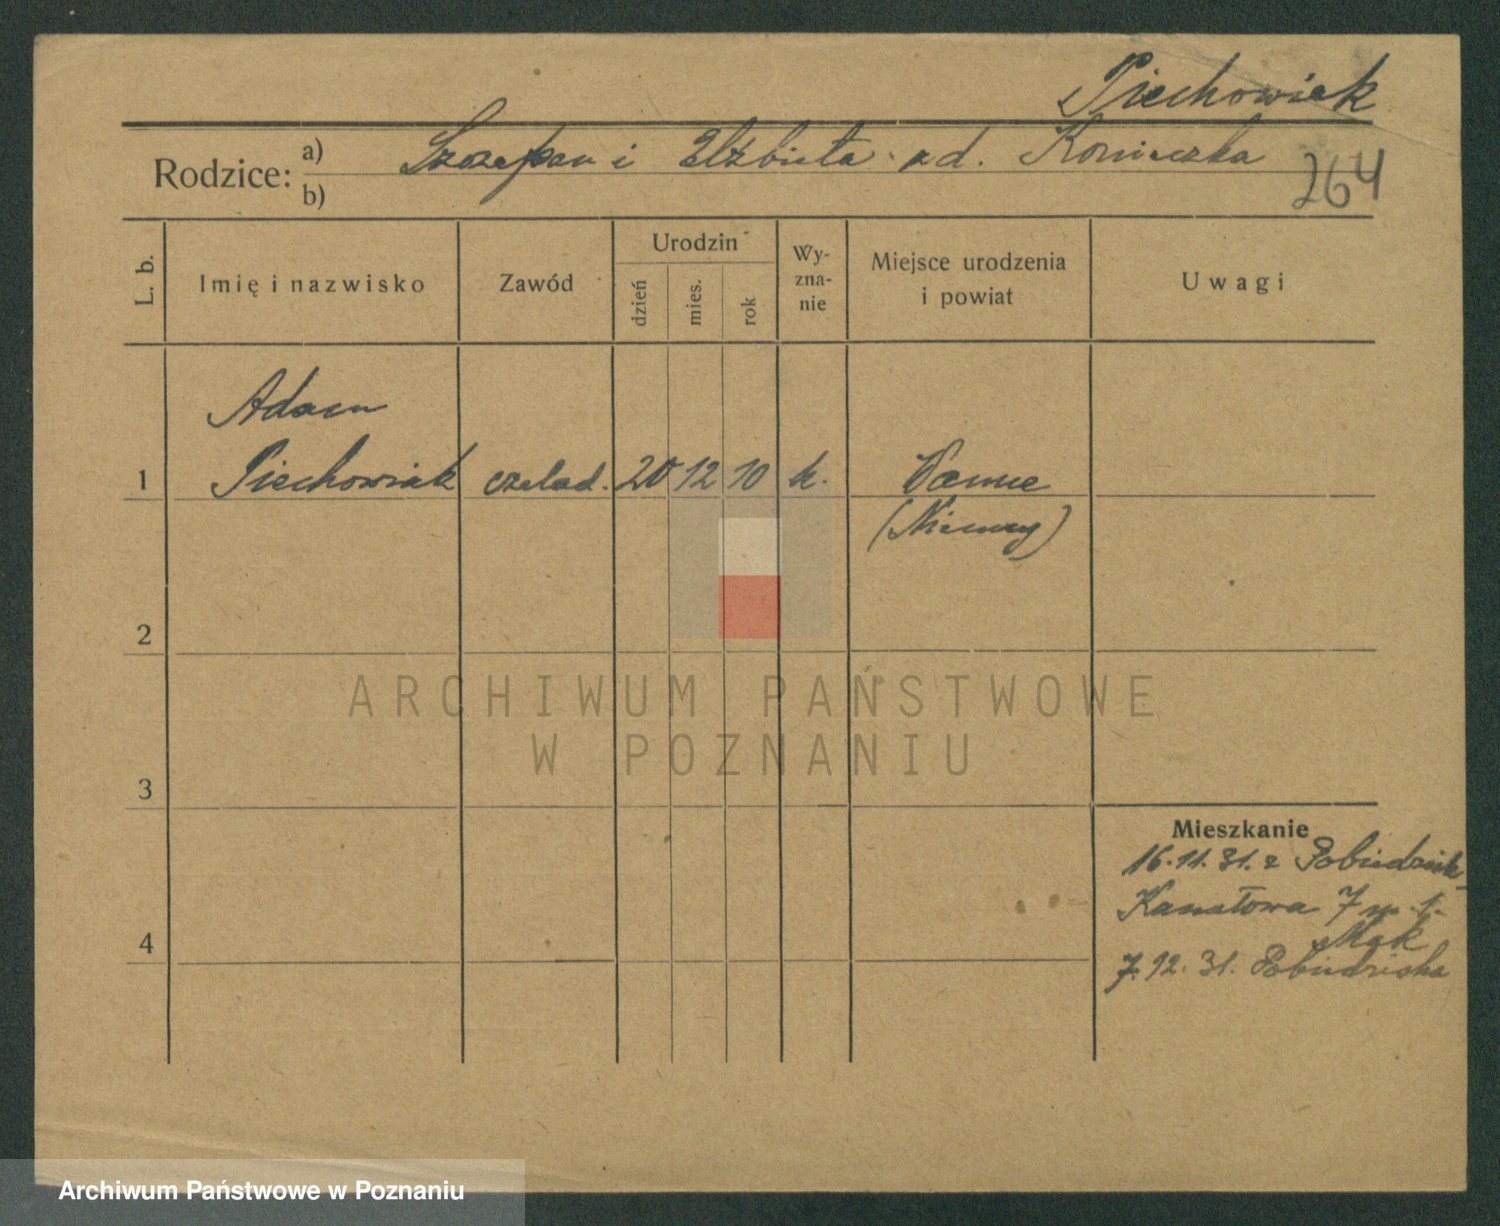 Piechowiak
Rodzice: a) Szczepan i Elżbieta zd. Konieczka
b)
264
L. b.
Imię i nazwisko
Zawód
Urodzin
dzień
mies.
rok
Wy-
zna-
nie
Miejsce urodzenia
i powiat
Uwagi
Adam
1 Piechowiak czelad. 20 12 10 k. Wanne
(Niemcy)
2
ARCHIWUM PAŃSTWOWE
W POZNANIU
3
Mieszkanie
16.11.31. z Pobiedzisk
7
4
7.12.31. Pobiedziska
Archiwum Państwowe w Poznaniu